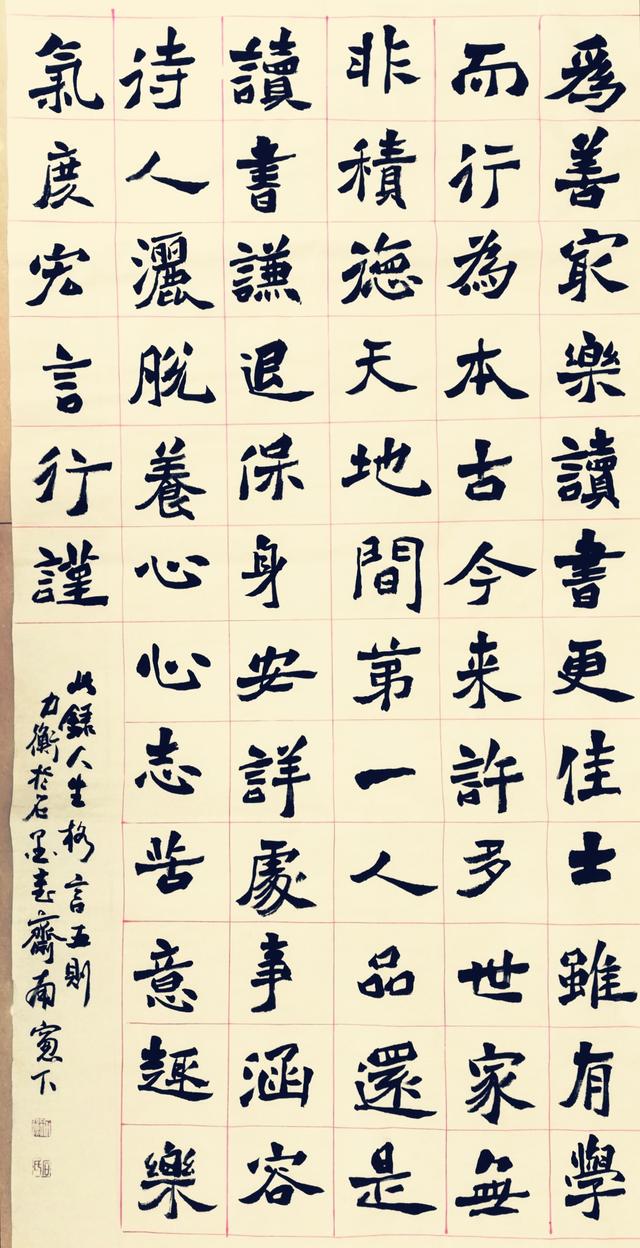 爲善最樂讀書更佳士雖有學
而行為本古今来許多世家無
非積德天地間第一人品還是
讀書謙退保身安詳處事涵容
待人灑脱養心心志苦意趣樂
氣度宏言行謹
此録人生格言五則
力衡於石墨壽齋南窗下